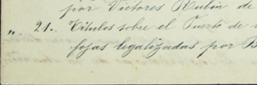 por Victores Rubin de
" 21. Titulos sobre el Puerto de
fojas legalizadas por